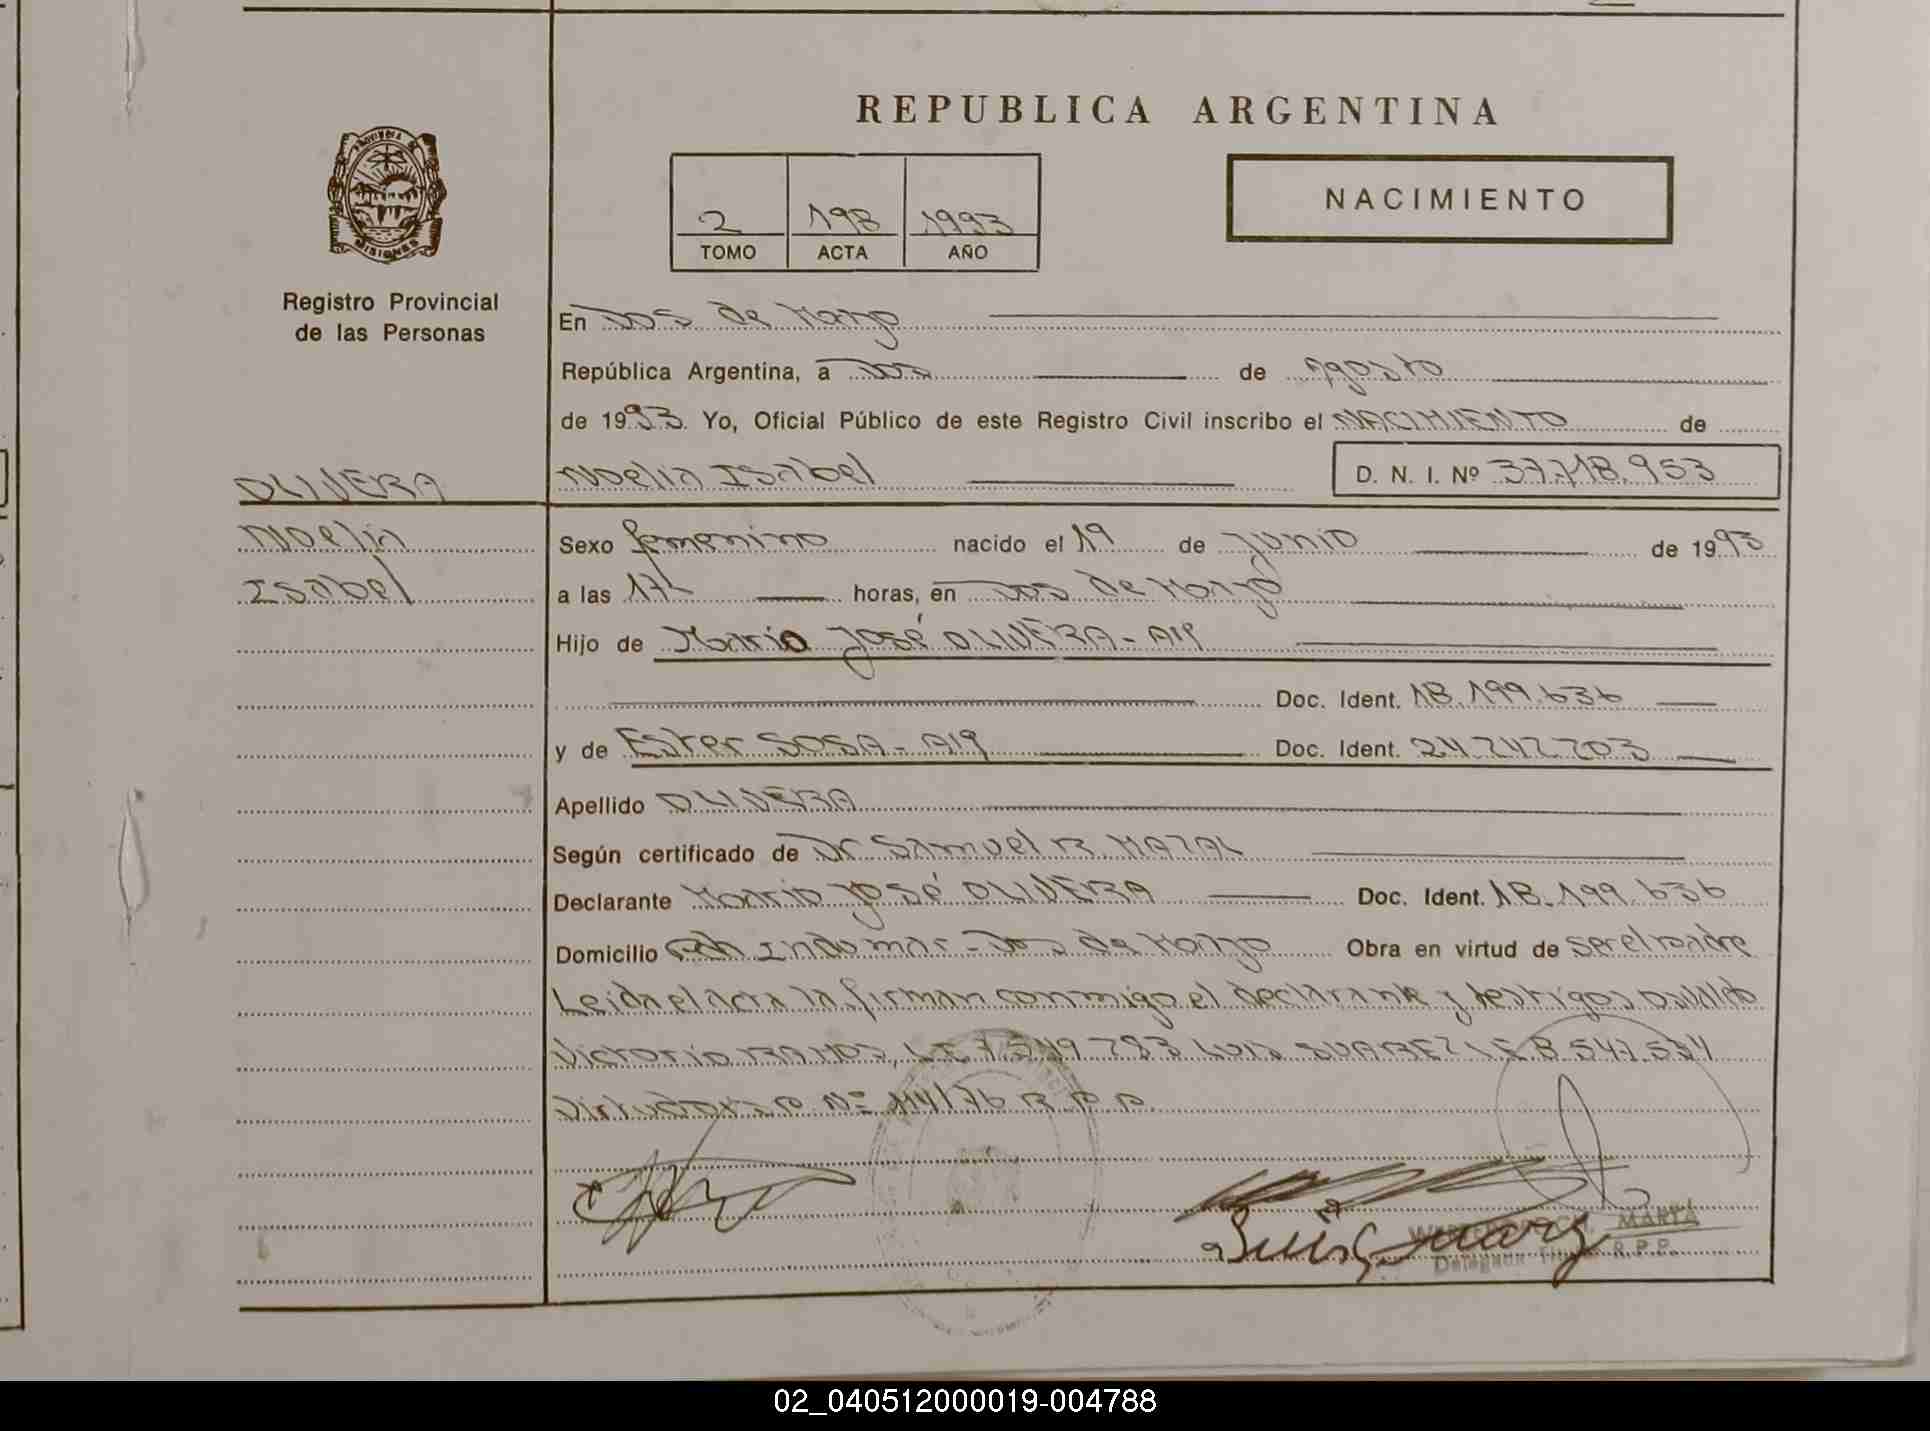 REPUBLICA ARGENTINA
PROVINCIA DE
MISIONES
2 198 1993
TOMO ACTA AÑO
NACIMIENTO
Registro Provincial
de las Personas
En Dos de Mayo
República Argentina, a Dos de Agosto
de 1993. Yo, Oficial Público de este Registro Civil inscribo el NACIMIENTO de
OLIVERA Noelia Isabel D. N. I. Nº 37.718.953
Noelia Sexo femenino nacido el 19 de Junio de 1993
Isabel a las 17 horas, en Dos de Mayo
Hijo de Mario José OLIVERA - Arg
Doc. Ident. 18.199.636
y de Ester SOSA - Arg Doc. Ident. 24.742.703
Apellido OLIVERA
Según certificado de Dr Samuel R. MAZAL
Declarante Mario José OLIVERA Doc. Ident. 18.199.636
Domicilio Indumar - Dos de Mayo Obra en virtud de ser el padre
Leida el acta la firman conmigo el declarante y testigos Osvaldo
Victorio RAMOS, L.E 7.549.783 LUIS SUAREZ L.E 8.541.534
Nº 114/76 R.P.P.
MARTA
R.P.P.
02_040512000019-004788